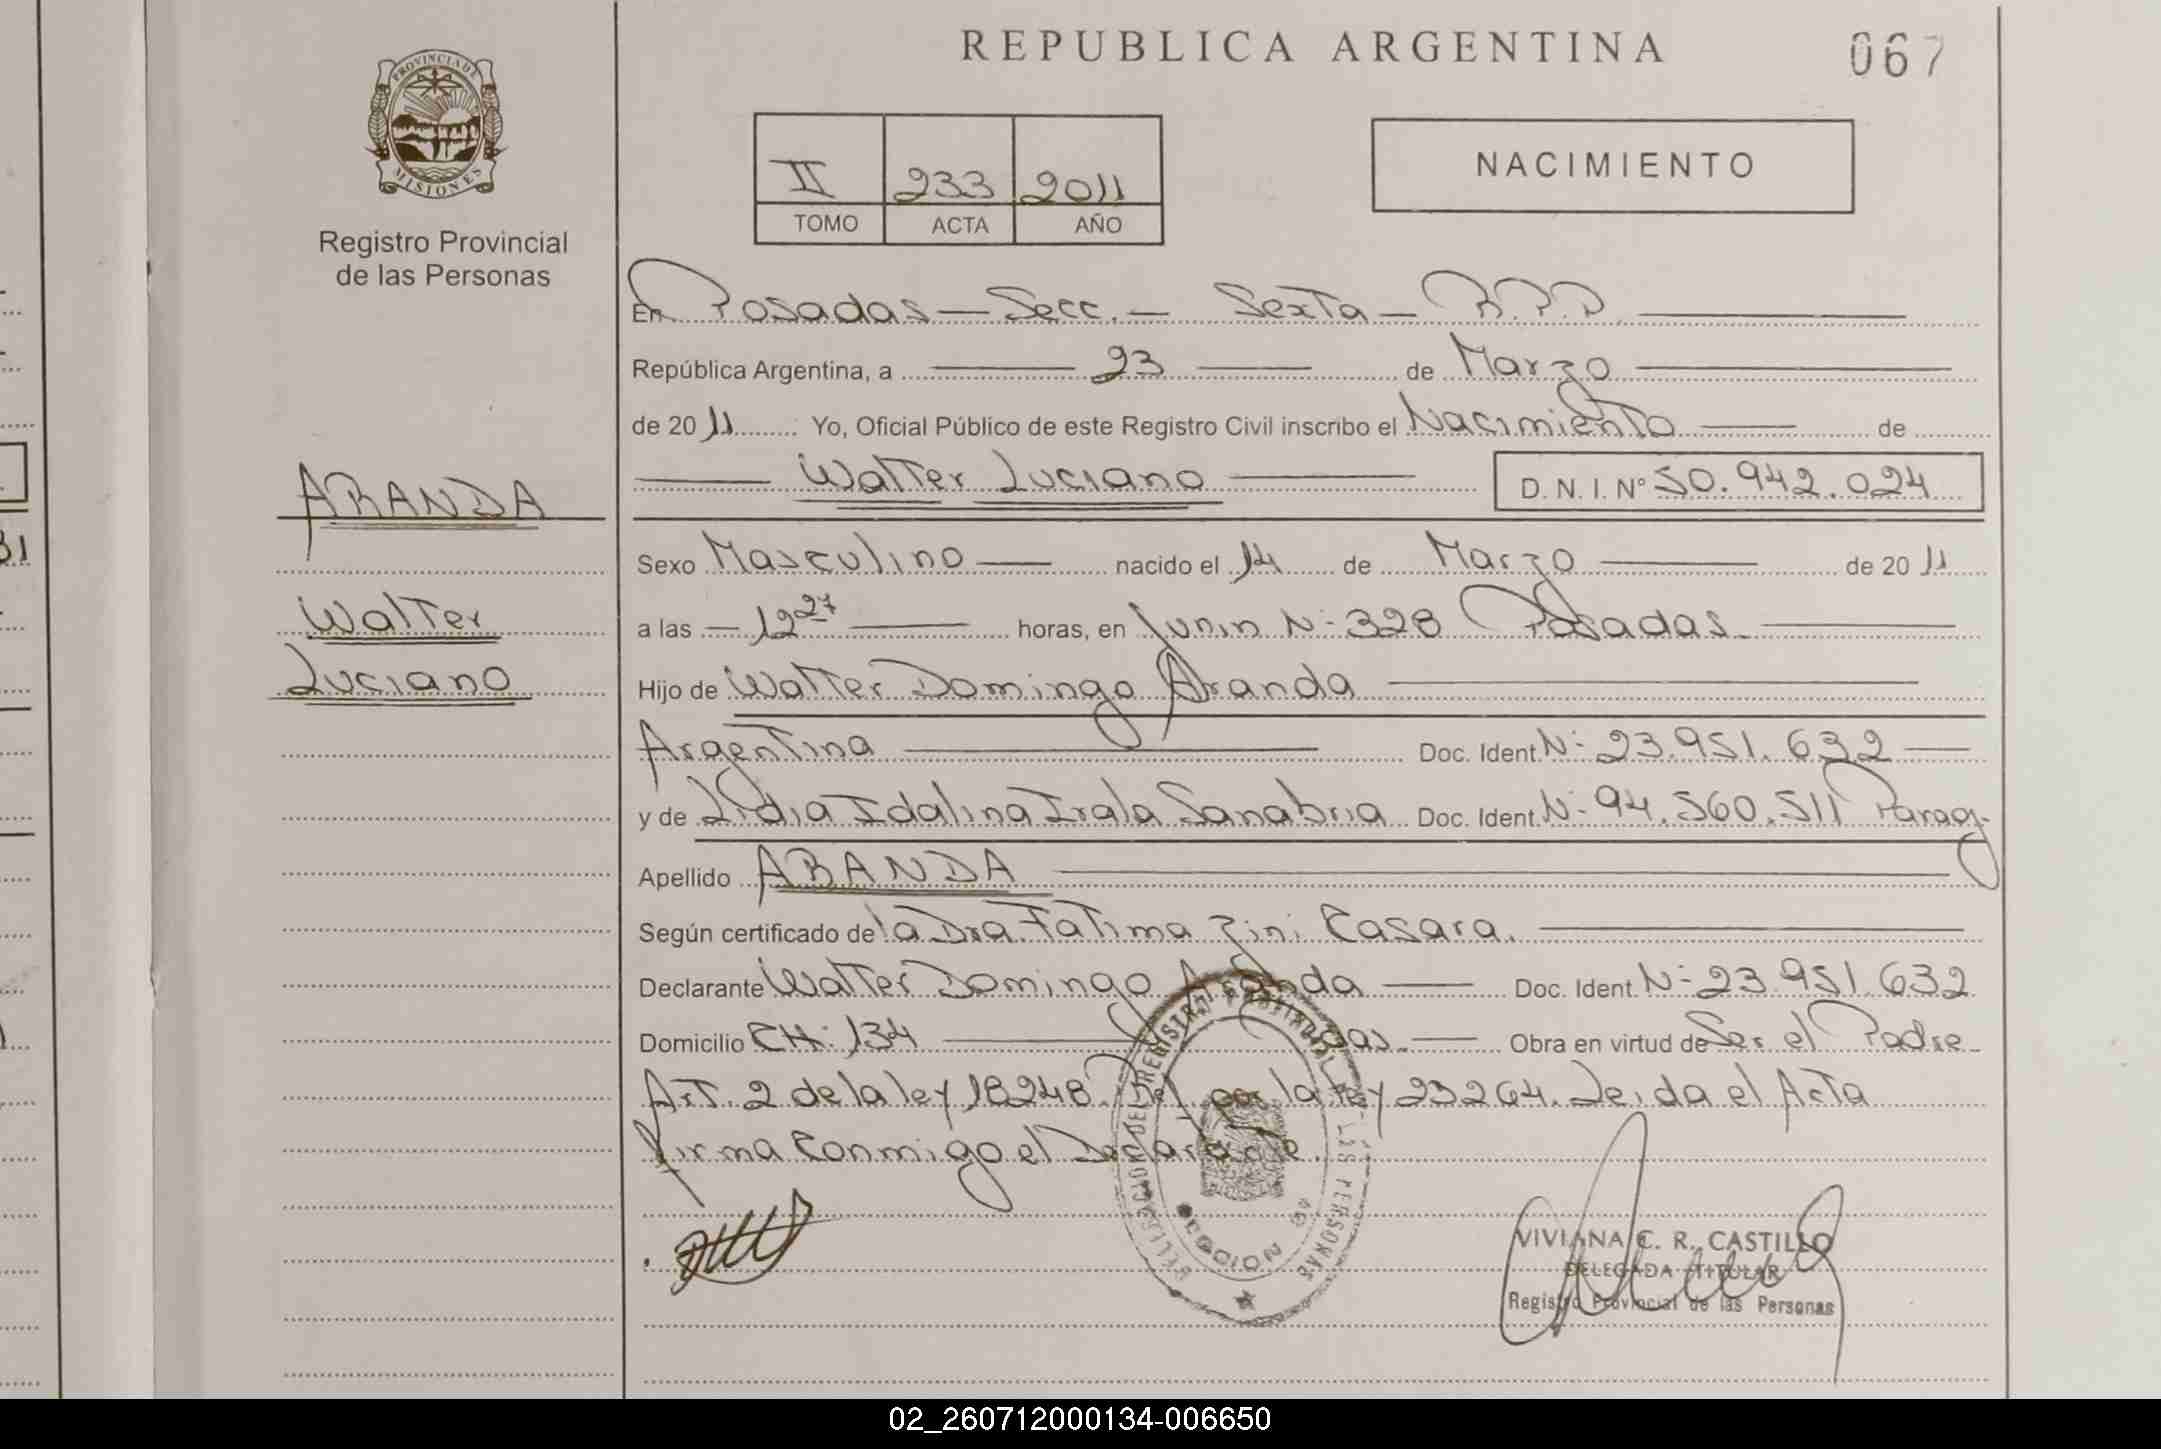 REPUBLICA ARGENTINA
067
PROVINCIA DE
MISIONES
Registro Provincial
de las Personas
II 233 2011
TOMO ACTA AÑO
NACIMIENTO
En Posadas - Secc. - Sexta - R.P.P.
República Argentina, a 23 de Marzo
de 2011 Yo, Oficial Público de este Registro Civil inscribo el Nacimiento de
Walter Luciano D. N. I. N° 50.942.024
ARANDA
Walter
Luciano
Sexo Masculino nacido el 14 de Marzo de 2011
a las 12 27 horas, en Junin N- 328 Posadas
Hijo de Walter Domingo Aranda
Argentina Doc. Ident. N- 23.951.632
y de Lidia Idalina Irala Sanabria Doc. Ident. N- 94.560.511 Parag.
Apellido ARANDA
Según certificado de la Dra. Fatima Zini Casara.
Declarante Walter Domingo Aranda Doc. Ident. N- 23.951.632
Domicilio CH: 134 Obra en virtud de Ser el Padre
Art. 2 de la ley 18248. por la ley 23264. Leida el Acta
firma Conmigo el Declarante.
VIVIANA C. R. CASTILLO
DELEGADA TITULAR
Registro Provincial de las Personas
02_260712000134-006650